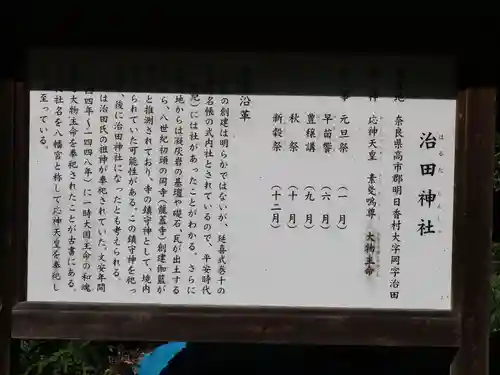 治田神社
はるたじんじゃ
奈良県高市郡明日香村大字岡字治田
応神天皇 素戔嗚尊 大物主命
元旦祭 (一月)
早苗饗 (六月)
豊穣講 (九月)
秋祭 (十月)
新穀祭 (十二月)
沿革
の創建は明らかではないが、延喜式巻十の
名帳の式内社とされているので、平安時代
記)には社があったことがわかる。さらに
地からは凝灰岩の基壇や礎石、瓦が出土する
ら、八世紀初頭の岡寺(龍蓋寺)創建伽藍が
と推測されており、寺の鎮守神として、境内
られていた可能性がある。この鎮守神を祀っ
、後に治田神社になったとも考えられる。
は治田氏の祖神が奉祀されていた。文安年間
四四年~一四四八年)に一時大国主命の和魂
大物主命を奉祀されたことが古書にある。
社名を八幡宮と称して応神天皇を奉祀し
至っている。